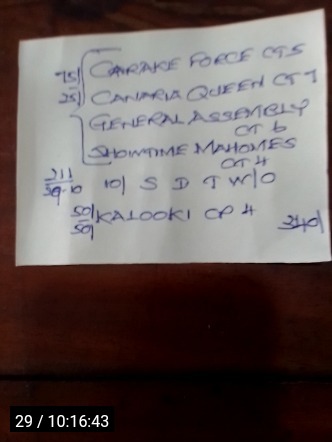 75/ CARAKE FORCE CT5
25/ CANARIA QUEEN CT 7
GENERAL ASSEMBLY
CT 6
SHOWTIME MAHOMES
CT 4
211 10/ S D T W/O
50/ KALOOKI CP 4
50/ 340/
29 / 10:16:43